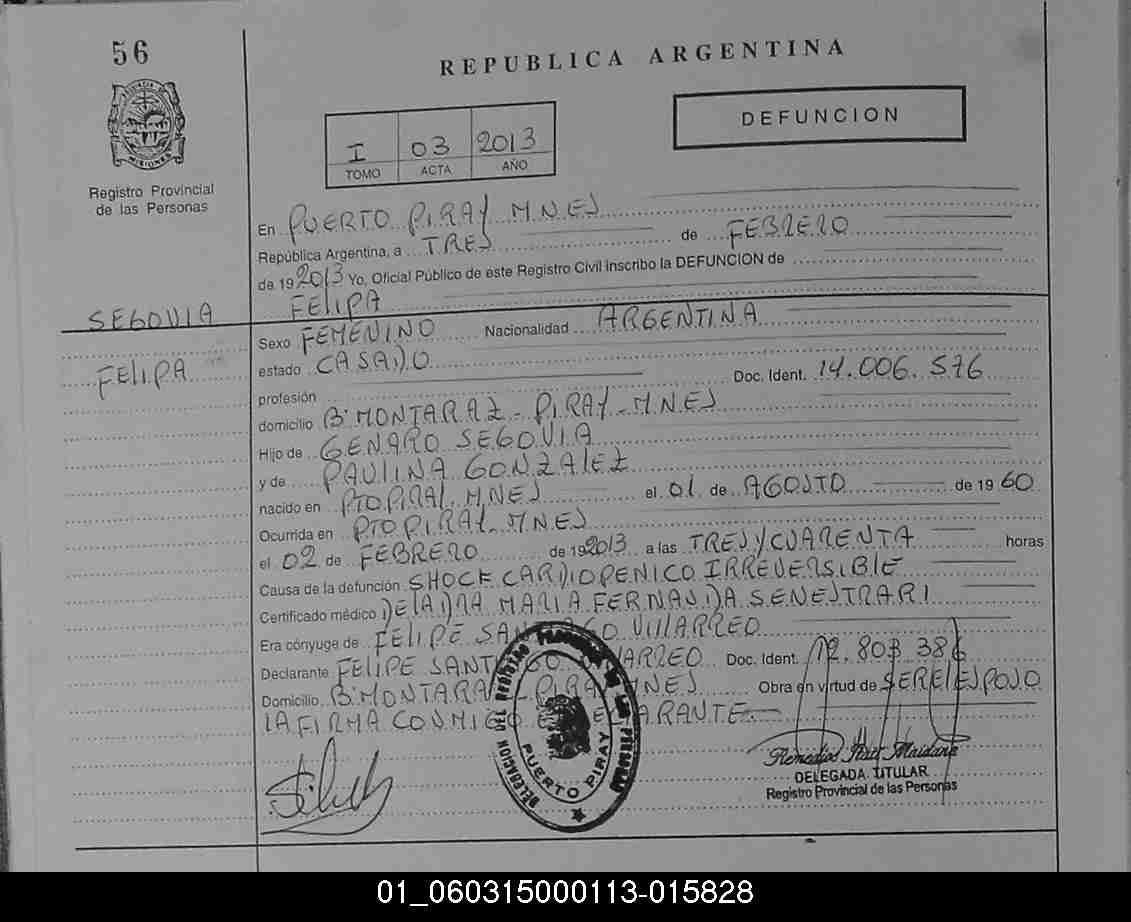 56
REPUBLICA ARGENTINA
DEFUNCION
I 03 2013
TOMO ACTA AÑO
PROVINCIA DE
MISIONES
Registro Provincial
de las Personas
En PUERTO PIRAY M.N.ES
República Argentina, a TRES de FEBRERO
de 19 2013 Yo, Oficial Público de este Registro Civil inscribo la DEFUNCION de
SEGOVIA FELIPA
FELIPA
Sexo FEMENINO Nacionalidad ARGENTINA
estado CASADO
profesión Doc. Ident. 14.006.576
domicilio Bº MONTARAZ - PIRAY - M.NES
Hijo de GENARO SEGOVIA
y de PAULINA GONZALEZ
nacido en PTO PIRAY. M.NES el 01 de AGOSTO de 19 60
Ocurrida en PTO PIRAY - M.NES
el 02 de FEBRERO de 19 2013 a las TRES Y CUARENTA horas
Causa de la defunción SHOCK CARDIOPENICO IRREVERSIBLE
Certificado médico DE LA DRA MARIA FERNANDA SENESTRARI
Era cónyuge de FELIPE SANTIAGO VILLARREO
Declarante FELIPE SANTIAGO VILLARREO Doc. Ident. 12.803.386
Domicilio Bº MONTARAZ - PIRAY M.NES Obra en virtud de SER EL ESPOSO
LA FIRMA CONMIGO EL DECLARANTE
DELEGACION DEL REGISTRO PROVINCIAL DE LAS PERSONAS
PUERTO PIRAY
Remedios Maidana
DELEGADA TITULAR
Registro Provincial de las Personas
01_060315000113-015828